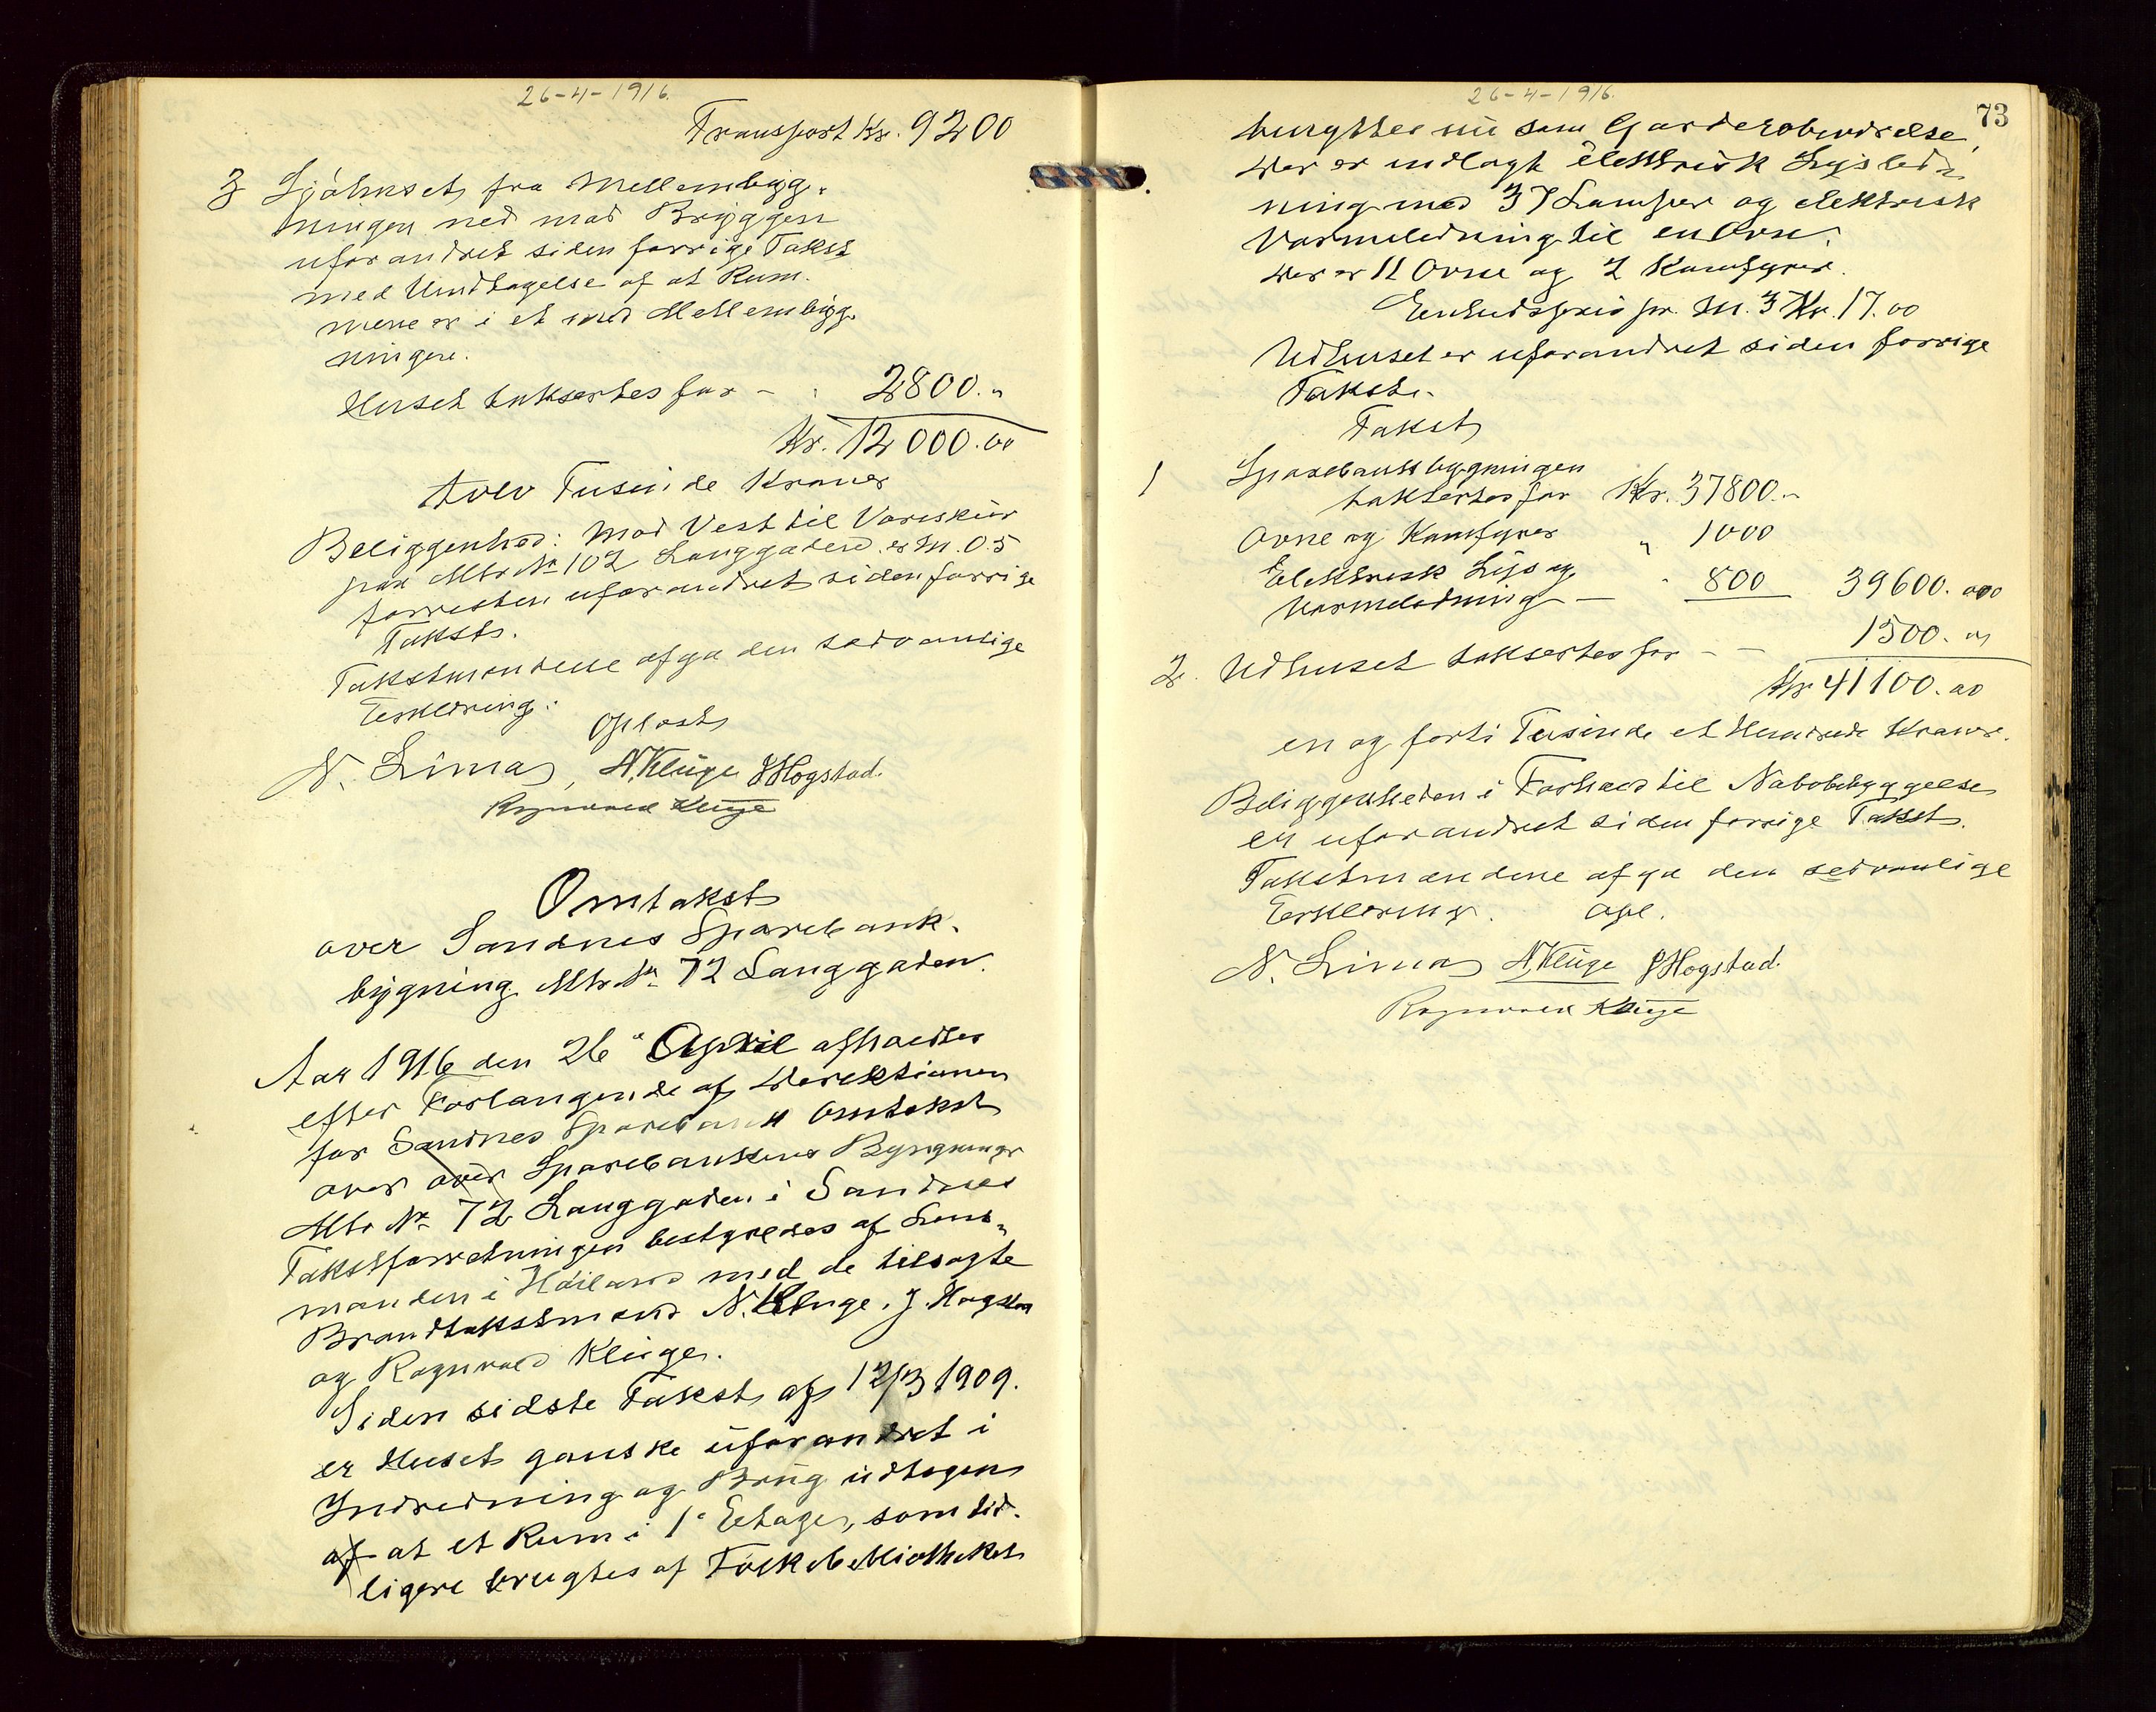 26-4-1916.
Transport Kr. 9200
3 Sjøhuset, fra Mellembyg-
ningen ned mod Bryggen
uforandret siden forrige Takst
med Undtagelse af at Rum-
mene er i et med Mellembyg-
ningen.
Huset takseres for - " 2800."
Kr. 12000.00
tolv Tusinde Kroner
Beliggenhed: Mod Vest til Vareskur
paa Mtr No 102 Langgaden er M. 0.5
forresten uforandret siden forrige
Takst.
Takstmændene afga den sedvanlige
Erklæring.
Oplæst
N. Lima, N. Kluge J Hogstad.
Ragnvald Kluge
Omtakst
over Sandnes Sparebank-
bygning Mtr. No 72 Langgaden.
Aar 1916 den 26' April afholdtes
efter Forlangende af Direktionen
for Sandnes Sparebank Omtakst
over over Sparebankens Bygninger
Mtr No 72 Langgaden i Sandnes
Takstforretningen bestyredes af Lens-
manden i Høiland med de tilsagte
Brandtakstmænd N. Kluge, J. Hogstad
og Ragnvald Kluge.
Siden sidste Takst af 12/3 1909.
er Huset ganske uforandret i
Indredning og Brug udtagen
af at et Rum i 1' Etage, som tid-
ligere brugtes af Folkebibliotheket
26-4-1916.
73
benyttes nu som Garderobeværelse,
der er indlagt elektrisk Lysled-
ning med 37 Lamper og elektrisk
Varmeledning til en Ovn.
der er 11 Ovne og 2 Komfyrer.
Enhedspris pr. M.3 Kr. 17.00
Udhuset er uforandret siden forrige
Takst.
Takst
1 Sparebankbygningen
takseres for Kr. 37800.-
Ovne og Komfyrer " 1000
Elektrisk Lys og
Varmeledning - " 800 39600.00
2. Udhuset takseres for - - 1500.00
Kr 41100.00
en og forti Tusinde et Hundrede Kroner.
Beliggenheden i Forhold til Nabobebyggelse
er uforandret siden forrige Takst.
Takstmændene afga den sedvanlige
Erklæring. Opl.
N. Lima N. Kluge J Hogstad.
Ragnvald Kluge